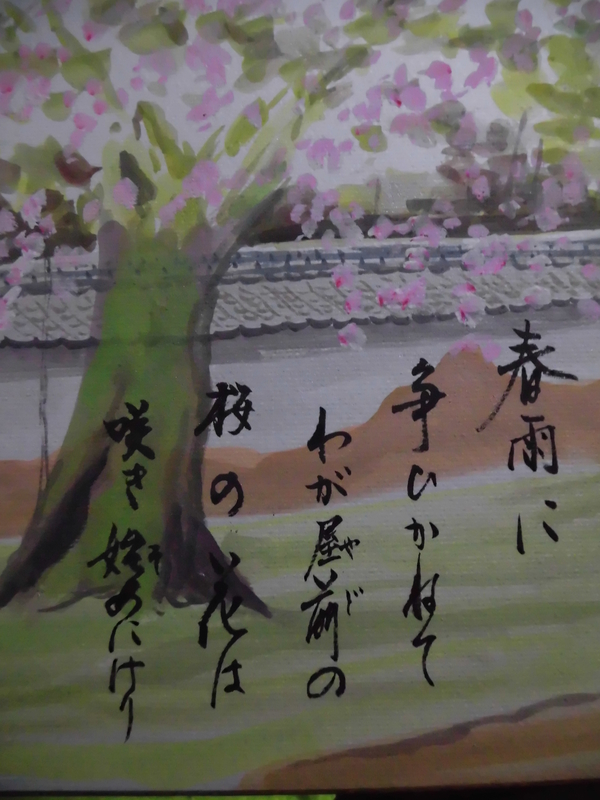 春雨に
争ひかねて
わが屋前の
やど
桜の花は
咲き始めにけり
そ